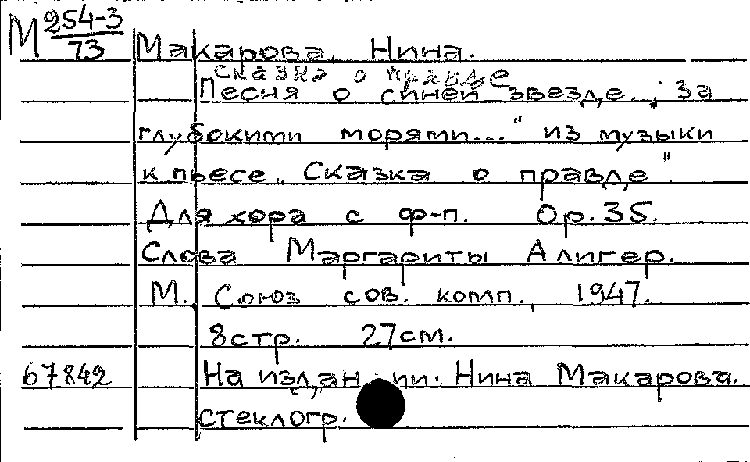 М 254-3/73
Макарова, Нина.
сказка о правде
Песня о синей звезде... "За
глубокими морями..." из музыки
к пьесе „Сказка о правде"
Для хора с ф-п. Ор. 35.
Слова Маргариты Алигер.
М. Союз сов. комп., 1947.
8 стр. 27 см.
67842 На издан. : Нина Макарова.
стеклогр.